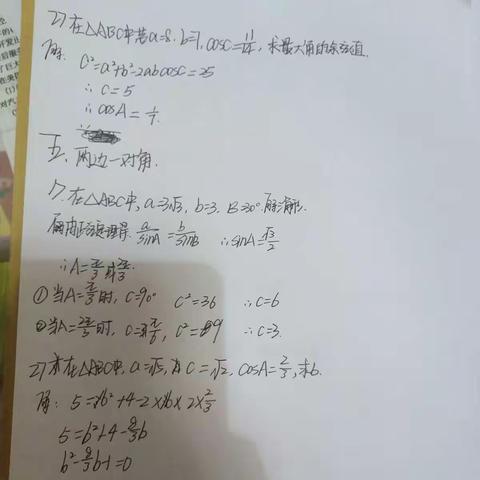 2) 在△ABC中若a=8, b=7, cosC=11/14, 求最大角的余弦值.
解: C²=a²+b²-2abcosC=25
∴ C=5
∴ cosA=1/7
五、两边一对角.
1) 在△ABC中, a=3√3, b=3. B=30° 解三角形.
a/sinA=b/sinB ∴ sinA=√3/2
∴ A=π/3 或 2π/3
① 当A=π/3时, C=90° C²=36 ∴ C=6
② 当A=2π/3时, C=π/6, C²=9 ∴ C=3.
2) 在△ABC中, a=√5, C=√2, cosA=2/3, 求b.
解: 5=b²+4-2×b×2×2/3
5=b²+4-8/3b
b²-8/3b-1=0